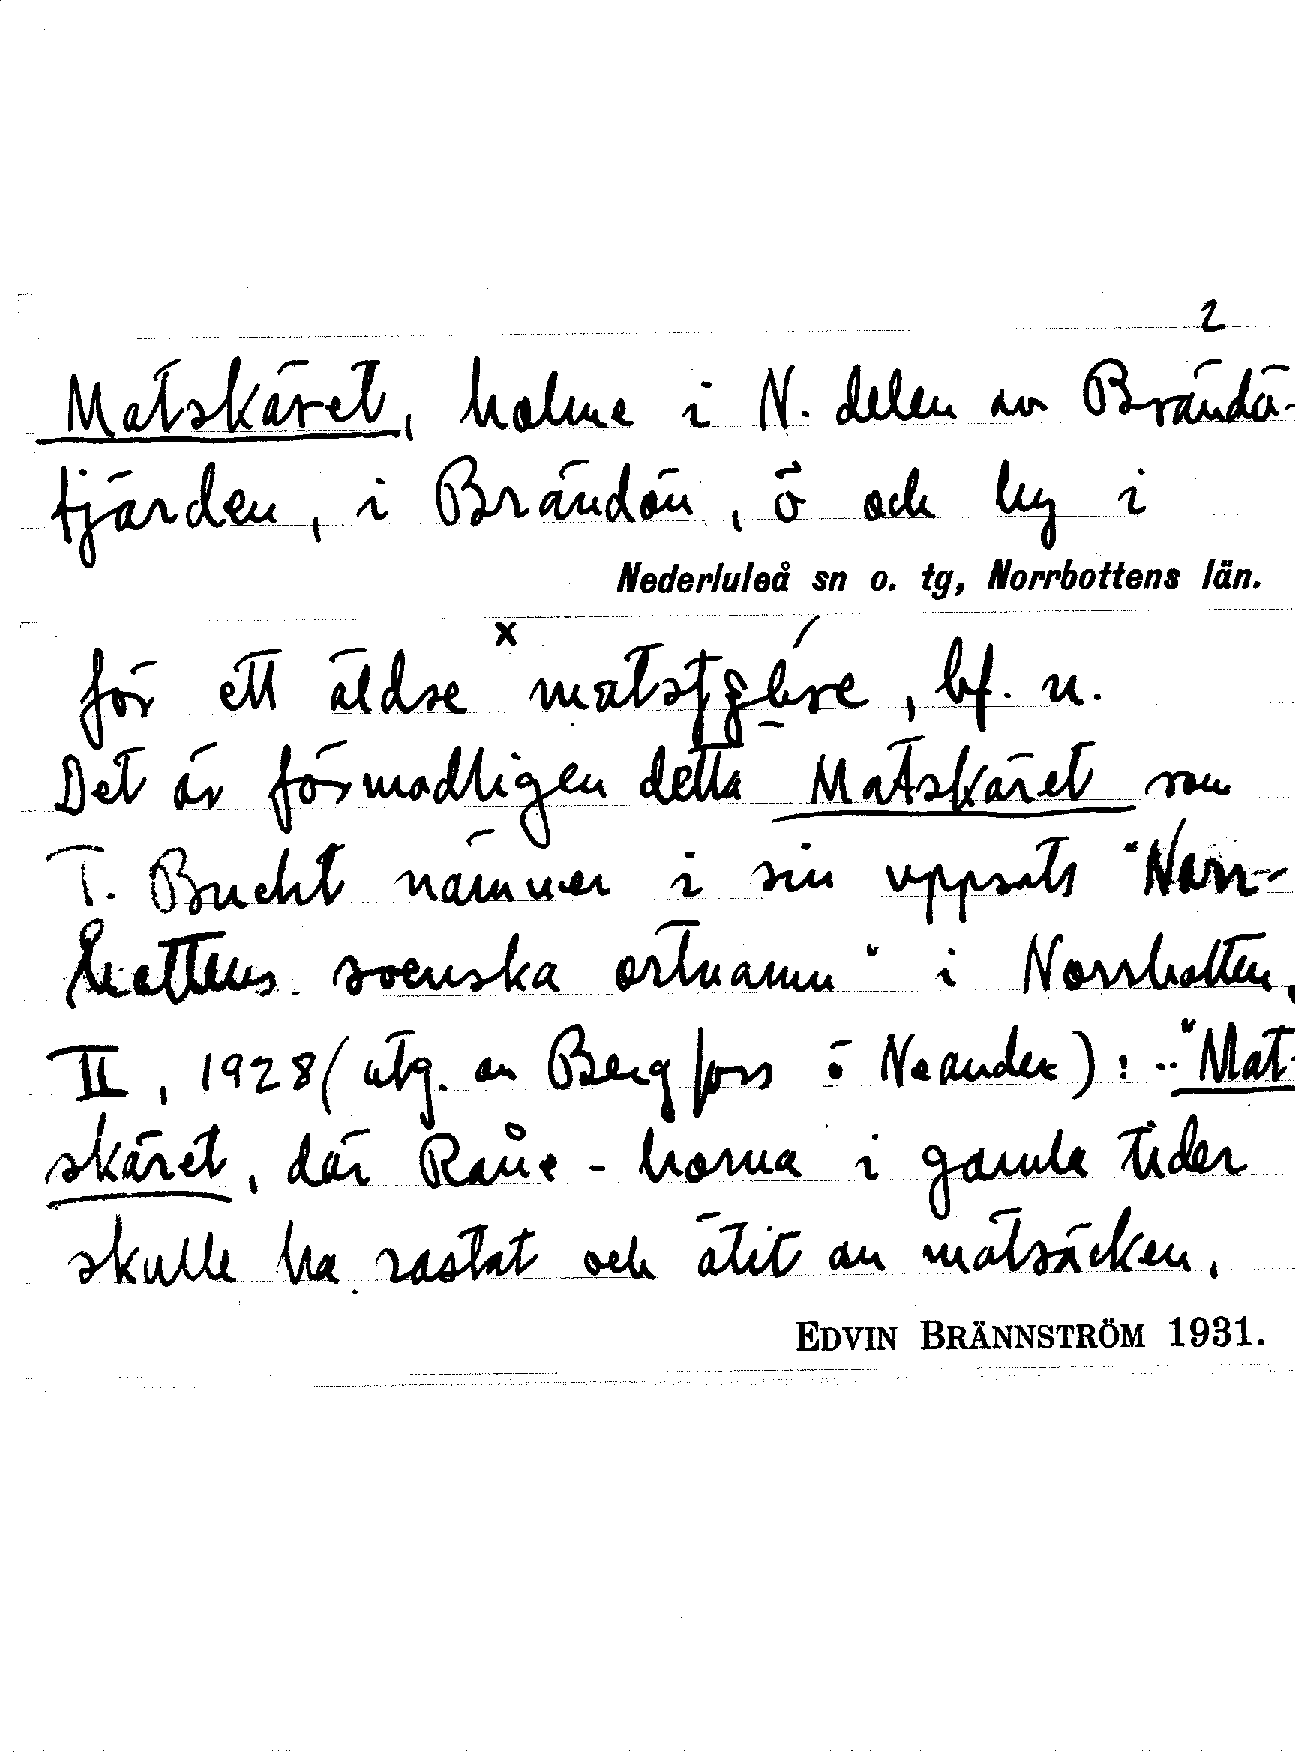 2
Matskäret, holme i N. delen av Brändö-
fjärden, i Brändön, ö och by i
Nederluleå sn o. tg, Norrbottens län.
för ett äldre bf. n.
Det är förmodligen detta Matskäret som
T. Bucht nämner i sin uppsats "Norr-
bottens svenska ortnamn" i Norrbotten,
II, 1928 (utg. av Bergfors o Neander): .. "Mat-
skäret, där Råne-borna i gamla tider
skulle ha rastat och ätit av matsäcken.
EDVIN BRÄNNSTRÖM 1931.